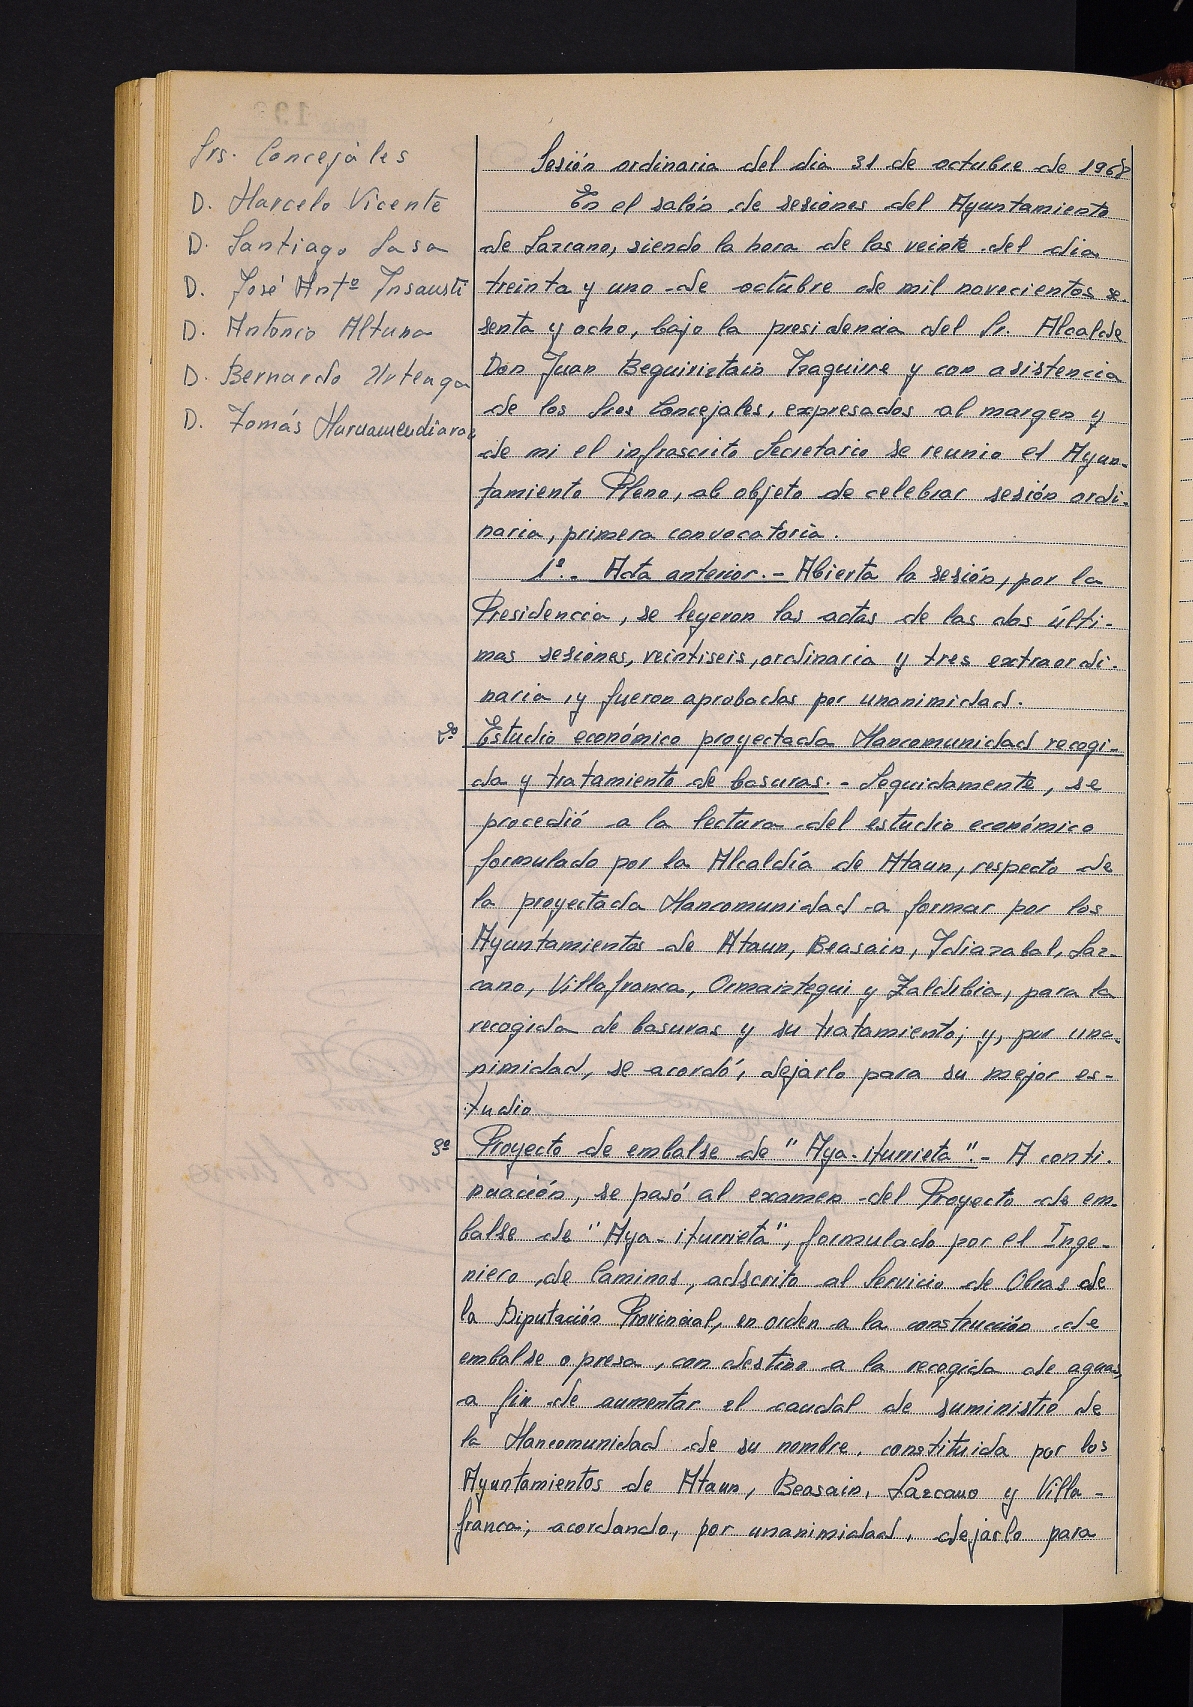 Srs. Concejáles
D. Marcelo Vicente
D. Santiago Sasa
D. José Antº Insausti
D. Antonio Altuna
D. Bernardo Urteaga
D. Tomás Muruamendiaraz
Sesión ordinaria del dia 31 de octubre de 1968
En el salón de sesiones del Ayuntamiento
de Lazcano, siendo la hora de las veinte del dia
treinta y uno de octubre de mil novecientos se-
senta y ocho, bajo la presidencia del Sr. Alcalde
Don Juan Beguiristain Izaguirre y con asistencia
de los Sres Concejales, expresados al margen y
de mi el infrascrito Secretario se reunio el Ayun-
tamiento Pleno, al objeto de celebrar sesión ordi-
naria, primera convocatoria.
1º.- Acta anterior.- Abierta la sesión, por la
Presidencia, se leyeron las actas de las dos últi-
mas sesiones, veintiseis, ordinaria y tres extraordi-
naria, y fueron aprobadas por unanimidad.
2º Estudio económico proyectada Mancomunidad recogi-
da y tratamiento de basuras.- Seguidamente, se
procedió a la lectura del estudio económico
formulado por la Alcaldía de Ataun, respecto de
la proyectada Mancomunidad a formar por los
Ayuntamientos de Ataun, Beasain, Idiazabal, Laz-
cano, Villafranca, Ormaiztegui y Zaldibia, para la
recogida de basuras y su tratamiento; y, por una-
nimidad, se acordó, dejarlo para su mejor es-
tudio
3º Proyecto de embalse de "Aya-iturrieta".- A conti-
nuación, se pasó al examen del Proyecto de em-
balse de "Aya-iturrieta", formulado por el Inge-
niero de Caminos, adscrito al Servicio de Obras de
la Diputación Provincial, en orden a la construcción de
embalse o presa, con destino a la recogida de aguas,
a fin de aumentar el caudal de suministro de
la Mancomunidad de su nombre, constituida por los
Ayuntamientos de Ataun, Beasain, Lazcano y Villa-
franca; acordando, por unanimidad, dejarlo para